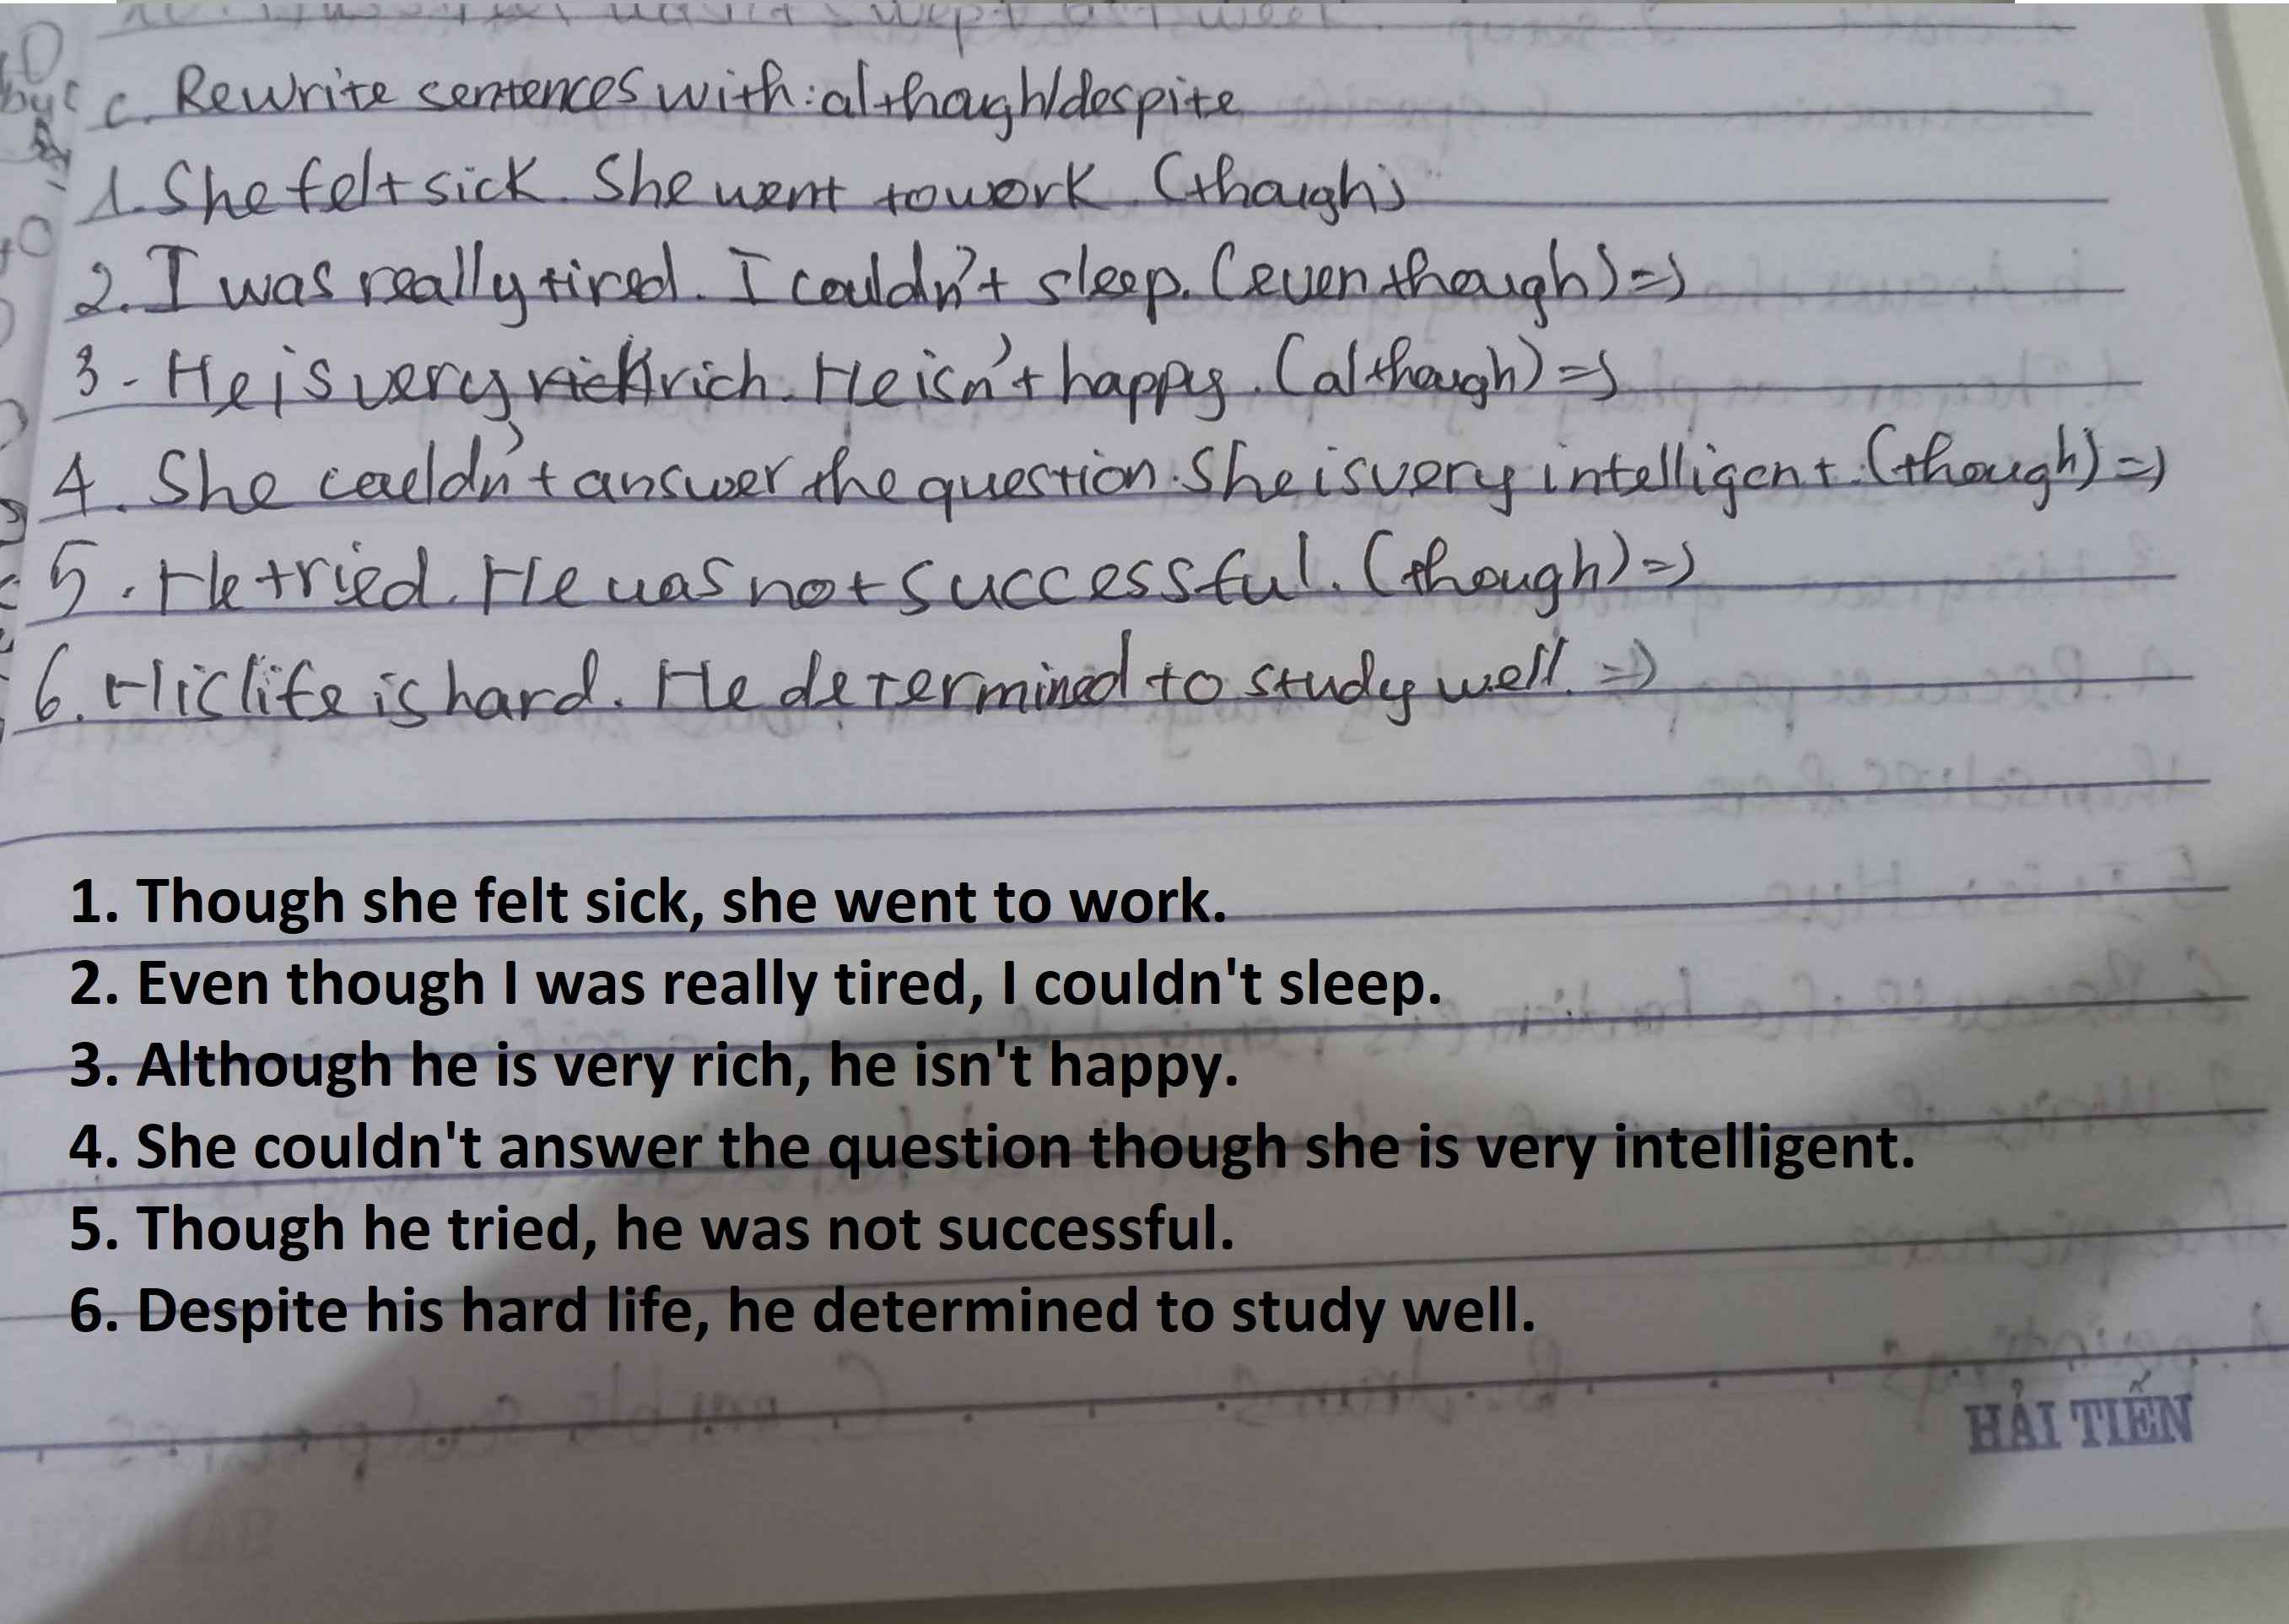 c. Rewrite sentences with: although/despite
1. She felt sick. She went to work. (though)
2. I was really tired. I couldn't sleep. (even though) =>
3 - He is very rich. He isn't happy. (although) =>
4. She couldn't answer the question. She is very intelligent. (though) =>
5. He tried. He was not successful. (though) =>
6. His life is hard. He determined to study well. =>
1. Though she felt sick, she went to work.
2. Even though I was really tired, I couldn't sleep.
3. Although he is very rich, he isn't happy.
4. She couldn't answer the question though she is very intelligent.
5. Though he tried, he was not successful.
6. Despite his hard life, he determined to study well.
HẢI TIẾN